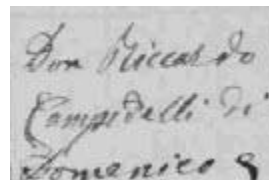 Don Riccardo
Campedelli di
Domenico